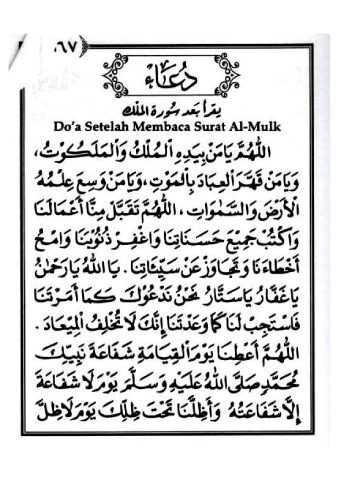 ٠٦٧
دُعَاءْ
يقرأ بعد سورة الملك
Do'a Setelah Membaca Surat Al-Mulk
اَللّٰهُمَّ يَا مَنْ بِيَدِهِ الْمُلْكُ وَالْمَلَكُوْتُ،
وَيَا مَنْ قَهَرَ الْعِبَادَ بِالْمَوْتِ، وَيَا مَنْ وَسِعَ عِلْمُهُ
الْأَرْضَ وَالسَّمٰوَاتِ، اَللّٰهُمَّ تَقَبَّلْ مِنَّا أَعْمَالَنَا
وَاكْتُبْ جَمِيْعَ حَسَنَاتِنَا وَاغْفِرْ ذُنُوْبَنَا وَامْحُ
أَخْطَاءَنَا وَتَجَاوَزْ عَنْ سَيِّئَاتِنَا. يَا اَللهُ يَا رَحْمٰنُ
يَا غَفَّارُ يَا سَتَّارُ نَحْنُ نَدْعُوْكَ كَمَا أَمَرْتَنَا
فَاسْتَجِبْ لَنَا كَمَا وَعَدْتَنَا إِنَّكَ لَا تُخْلِفُ الْمِيْعَادَ.
اَللّٰهُمَّ أَعْطِنَا يَوْمَ الْقِيَامَةِ شَفَاعَةَ نَبِيِّكَ
مُحَمَّدٍ صَلَّى اللهُ عَلَيْهِ وَسَلَّمَ يَوْمَ لَا شَفَاعَةَ
إِلَّا شَفَاعَتُهُ وَأَظِلَّنَا تَحْتَ ظِلِّكَ يَوْمَ لَا ظِلَّ